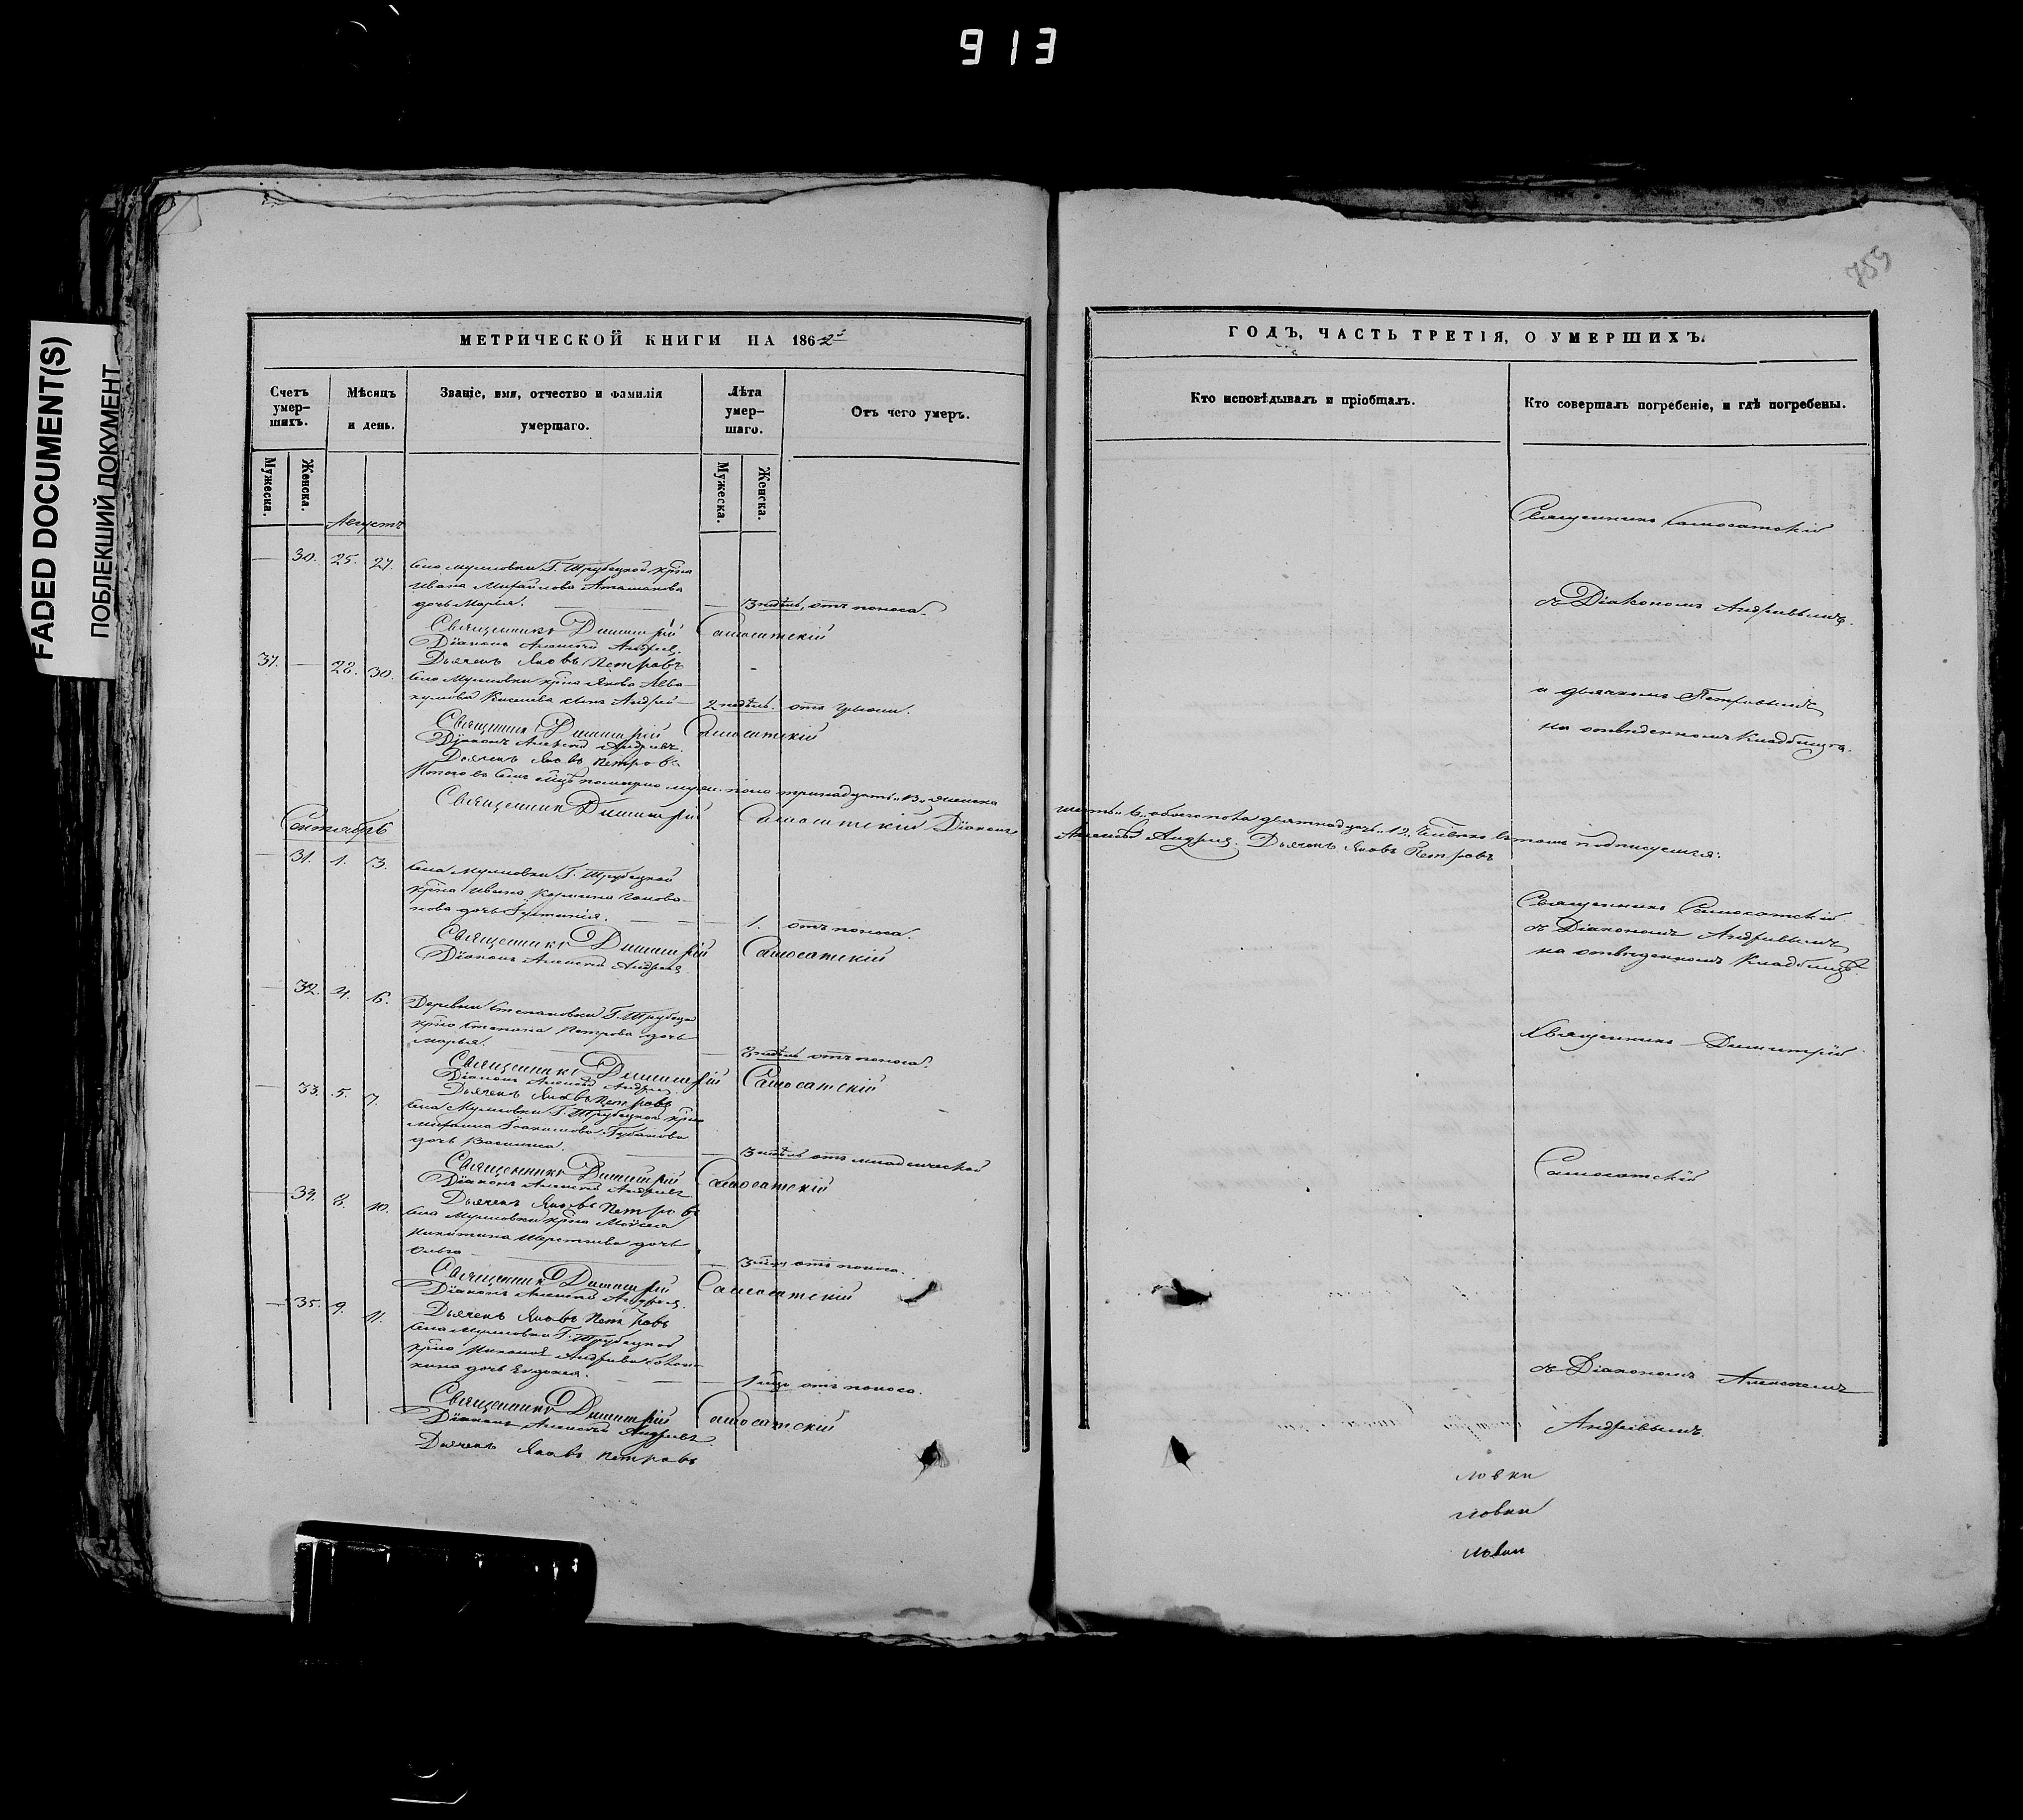 913
FADED DOCUMENT(S)
ПОБЛЕКШИЙ ДОКУМЕНТ
759
МЕТРИЧЕСКОЙ КНИГИ НА 1862й
Счетъ умер-
шихъ.
Мѣсяцъ
и день.
Званіе, имя, отчество и фамилія
умершаго.
Лѣта
умер-
шаго.
Отъ чего умеръ.
Мужеска.
Женска.
Мужеска.
Женска.
Августъ
30. 25. 27. Села Мулловки Г. Трубецкой крна
Ивана Михайлова
дочь Марья. 3 недѣль, отъ поноса.
Священникъ Димитрій Самосатскій
Діаконъ Алексѣй Андреевъ
Дьячекъ Яковъ Петровъ
37. 28. 30. Села Мулловки крна Якова Авва-
кумова сынъ Андрей 2 недѣль. отъ
Священникъ Димитрій Самосатскій
Діаконъ Алексѣй Андреевъ
Дьячекъ Яковъ Петровъ
Итого въ семъ м҃цѣ померло муж. пола тринадцать "13" женска
Священникъ Димитрій Самосатскій Діаконъ
Сентябрь
31. 1. 3. Села Мулловки Г. Трубецкой
крна Ивана
дочь 1. отъ поноса.
Священникъ Димитрій Самосатскій
Діаконъ Алексѣй Андреевъ
32. 4. 6. Деревни Степановки Г. Трубецк
крна Степана Петрова дочь
Марья. недѣль отъ поноса.
Священникъ Димитрій Самосатскій
Діаконъ Алексѣй Андреевъ
Дьячекъ Яковъ Петровъ
33. 5. 7. Села Мулловки Г. Трубецкой крна
дочь 3 недѣль отъ младенческой
Священникъ Димитрій Самосатскій
Діаконъ Алексѣй Андреевъ
Дьячекъ Яковъ Петровъ
34. 8. 10. Села Мулловки крна Моисея
Никитина дочь
Ольга отъ поноса.
Священникъ Димитрій Самосатскій
Діаконъ Алексѣй Андреевъ
Дьячекъ Яковъ Петровъ
35. 9. 11. Села Мулловки Г. Трубецкой
крна Андреева
дочь Евдокія. отъ поноса.
Священникъ Димитрій Самосатскій
Діаконъ Алексѣй Андреевъ
Дьячекъ Яковъ Петровъ
ГОДЪ, ЧАСТЬ ТРЕТІЯ, О УМЕРШИХЪ.
Кто исповѣдывалъ и пріобщалъ.
Кто совершалъ погребеніе, и гдѣ погребены.
Священникъ Самосатскій
съ Діакономъ Андреевымъ
и дьячкомъ Петровымъ
на отведенномъ кладбищѣ.
шесть "6" обоего пола девятнадцать "19" въ томъ подписуемся:
Алексѣй Андреевъ. Дьячекъ Яковъ Петровъ
Священникъ Самосатскій
съ Діакономъ Андреевымъ
на отведенномъ кладбищѣ.
Священникъ Димитрій
Самосатскій
съ Діакономъ Алексѣемъ
Андреевымъ.
ловки
ловки
ловки